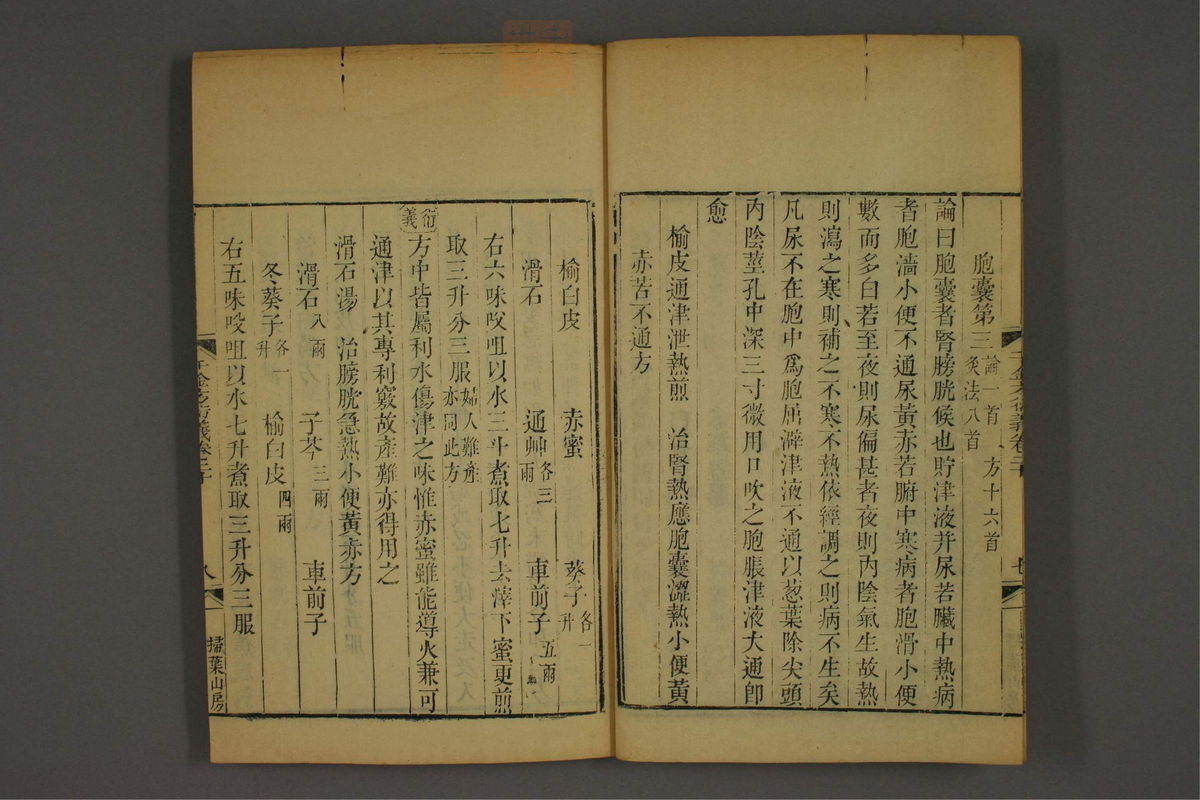 胞囊第三 論一首 方十六首 灸法八首
論曰胞囊者腎膀胱候也貯津液并尿若臟中熱病
者胞濇小便不通尿黃赤若腑中寒病者胞滑小便
數而多白若至夜則尿偏甚者夜則內陰氣生故熱
則瀉之寒則補之不寒不熱依經調之則病不生矣
凡尿不在胞中爲胞屈澼津液不通以葱葉除尖頭
內陰莖孔中深三寸微用口吹之胞脹津液大通卽
愈
榆皮通津泄熱煎 治腎熱應胞囊澀熱小便黃
赤苦不通方
榆白皮 赤蜜 葵子各一升
滑石 通艸各三兩 車前子五兩
右六味㕮咀以水三斗煮取七升去滓下蜜更煎
取三升分三服婦人難產亦同此方
衍義 方中皆屬利水傷津之味惟赤蜜雖能導火兼可
通津以其專利竅故產難亦得用之
滑石湯 治膀胱急熱小便黃赤方
滑石八兩 子芩三兩 車前子
冬葵子各一升 榆白皮四兩
右五味㕮咀以水七升煮取三升分三服
千金方衍義卷二十
八
掃葉山房